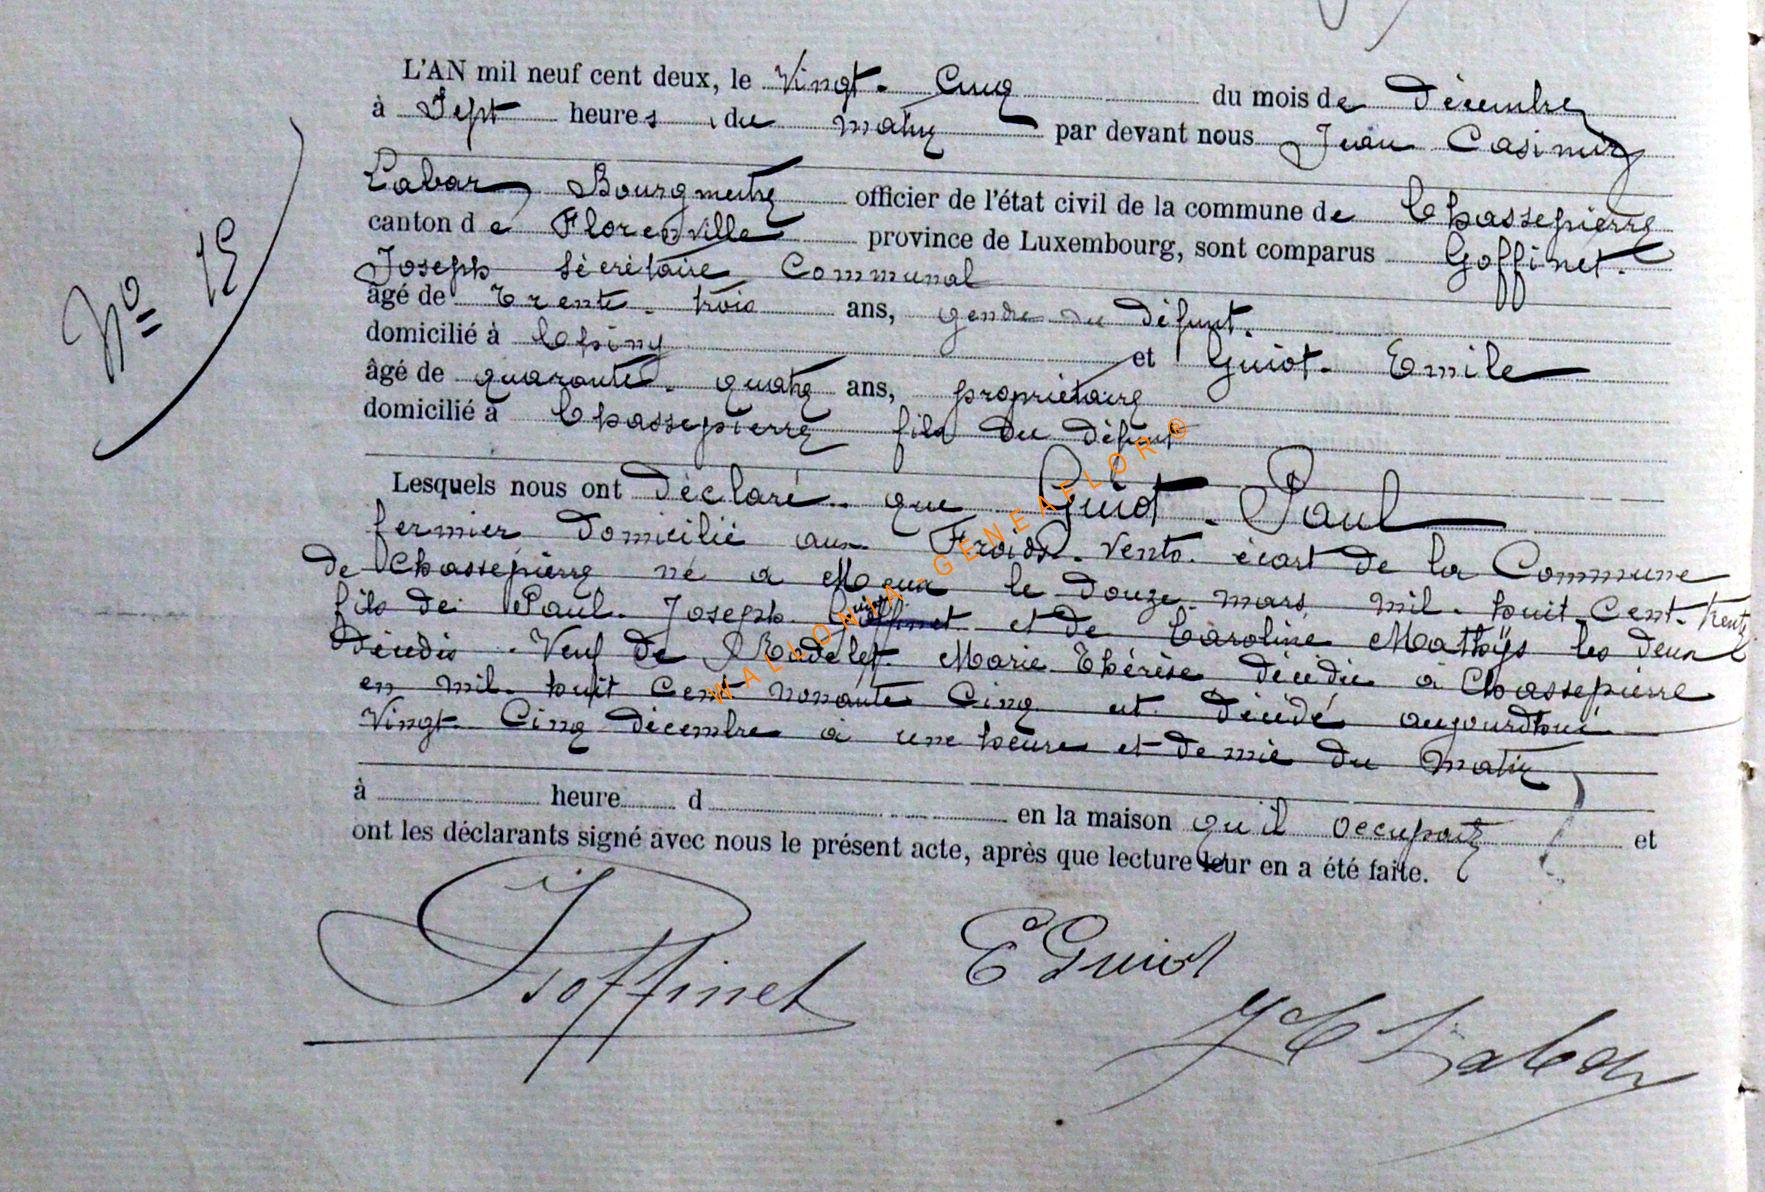 L'AN mil neuf cent deux, le Vingt-Cinq du mois de décembre
à Sept heures du matin par devant nous Jean Casimir
Labar Bourgmestre officier de l'état civil de la commune de Chassepierre
canton de Florenville province de Luxembourg, sont comparus Goffinet
Joseph Sécrétaire Communal
âgé de trente-trois ans, gendre du défunt.
domicilié à Chiny et Guiot Emile
âgé de quarante-quatre ans, propriétaire
domicilié à Chassepierre fils du défunt
Lesquels nous ont déclaré que Guiot Paul
fermier domicilié aux Froids-Vents écart de la Commune
de Chassepierre né à le douze mars mil-huit Cent-trente
fils de Paul-Joseph Guiot et de Caroline Mathijs les deux
décédés. Veuf de Marie Thérèse décédée à Chassepierre
en mil-huit cent nonante Cinq est décédé aujourdhui
Vingt-Cinq décembre à une heure et demie du Matin
à heure d en la maison qu'il occupait et
ont les déclarants signé avec nous le présent acte, après que lecture leur en a été faite.
No
WALLONIA-GENEAFLOR©
J Goffinet
E Guiot
J C Labar